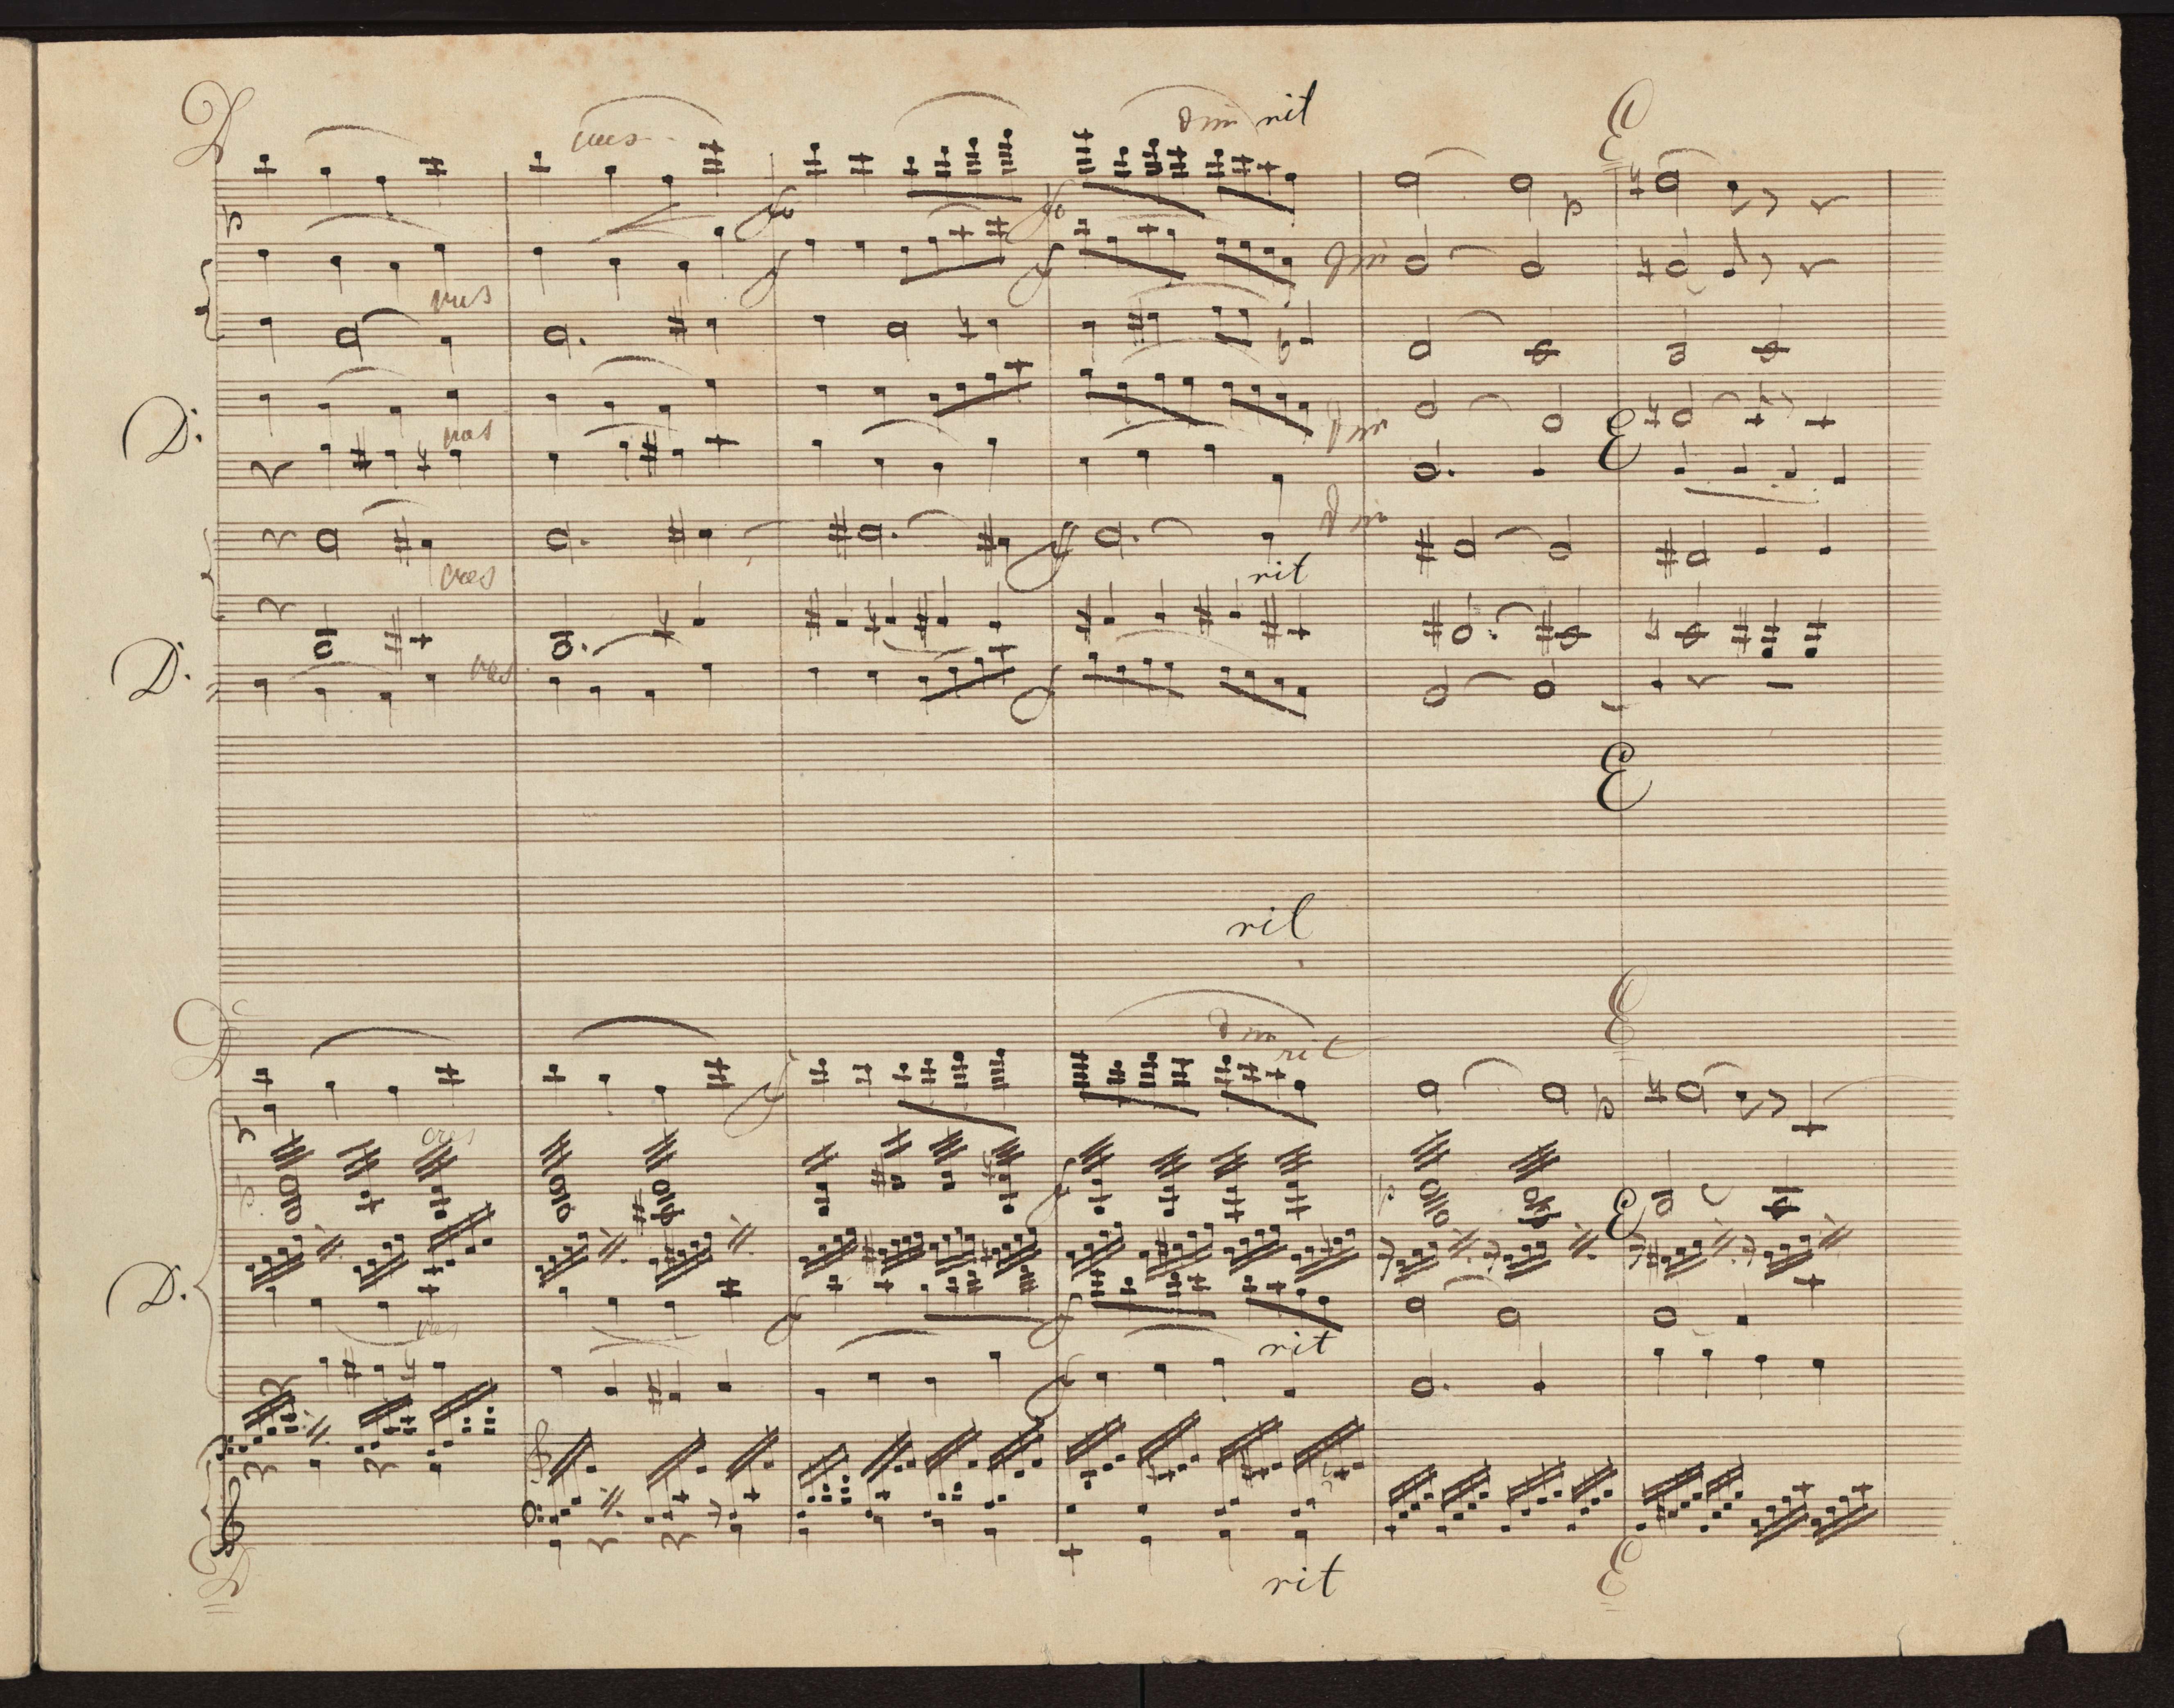 D
cres
dim rit
E
p
fo
fo
p
f
f
dim
cres
D.
cres
dim
E
ff
dim
rit
cres
D.
cres
f
E
rit
D
E
dim
rit
f
p
p
cres
p
f
p
E
D.
f
f
cres
rit
f
D
rit
E